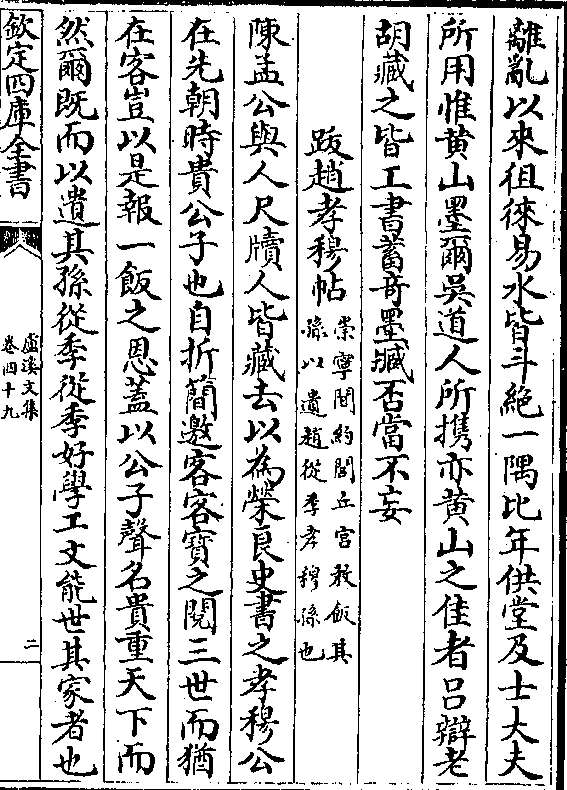 離亂以來徂徠易水皆斗絶一隅比年供堂及士大夫
所用惟黄山墨爾吳道人所携亦黄山之佳者吕辯老
胡藏之皆工書蓄奇墨臧否當不妄
跋趙孝穆帖
崇寧間約閭丘宫教飯其
孫以遺趙從季孝穆孫也
陳孟公與人尺牘人皆藏去以為榮良史書之孝穆公
在先朝時貴公子也自折簡邀客客寳之閱三世而猶
在客豈以是報一飯之恩蓋以公子聲名貴重天下而
然爾既而以遺其孫從季從季好學工文能世其家者也
欽定四庫全書
盧溪文集
卷四十九
二